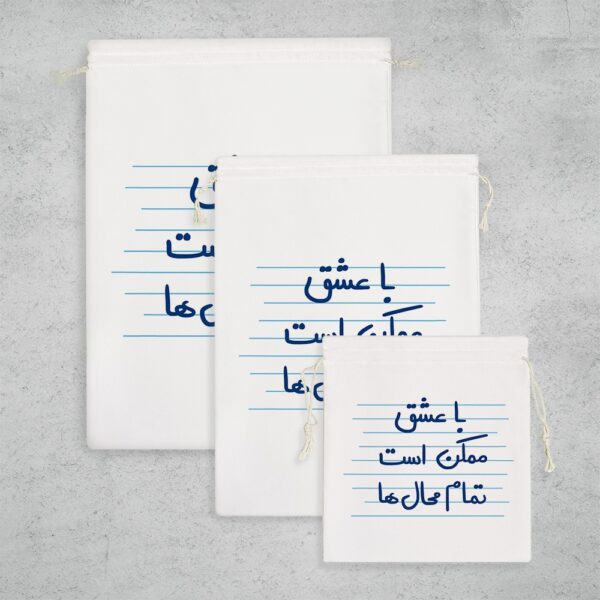 ق
ست
ل‌ها
با عشق
ممکن است
ها
با عشق
ممکن است
تمام محال‌ها